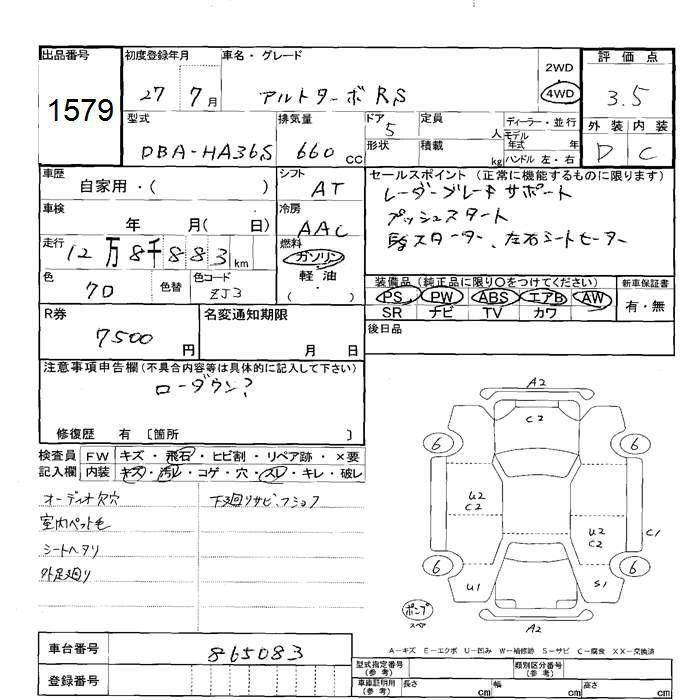 出品番号
1579
初度登録年月
27 7月
車名・グレード
アルトターボRS
2WD
4WD
評価点
3.5
外装 内装
D C
型式
DBA-HA36S
排気量
660 CC
ドア
5
形状
定員
人
積載
kg
ディーラー・並行
モデル
年式 年
ハンドル 左・右
車歴
自家用・( )
シフト
AT
セールスポイント (正常に機能するものに限ります)
レーダーブレーキサポート
プッシュスタート
スターター、左右シートヒーター
車検
年 月( 日)
冷房
AAC
走行
12万8千883km
燃料
ガソリン
軽油
( )
色
70
色替
色コード
ZJ3
装備品 (純正品に限り○をつけてください)
PS PW ABS エアB AW
SR ナビ TV カワ
新車保証書
有・無
R券
7500円
名変通知期限
月 日
後日品
注意事項申告欄 (不具合内容等は具体的に記入して下さい)
ローダウン?
修復歴 有 〔箇所 〕
検査員 FW キズ・飛石・ヒビ割・リペア跡・×要
記入欄 内装 キズ・汚レ・コゲ・穴・スレ・キレ・破レ
オーディオ欠穴
下廻りサビ、フショク
室内ペット毛
シートヘタリ
外足廻り
A2
C2
6
6
U2
C2
U2
C2
C1
6
6
U1
S1
ポンプ
スペア
A2
A-キズ E-エクボ U-凹み W-補修跡 S-サビ C-腐食 XX-交換済
車台番号
865083
登録番号
型式指定番号
(参考)
類別区分番号
(参考)
車庫証明用
(参考)
長さ cm
幅 cm
高さ cm